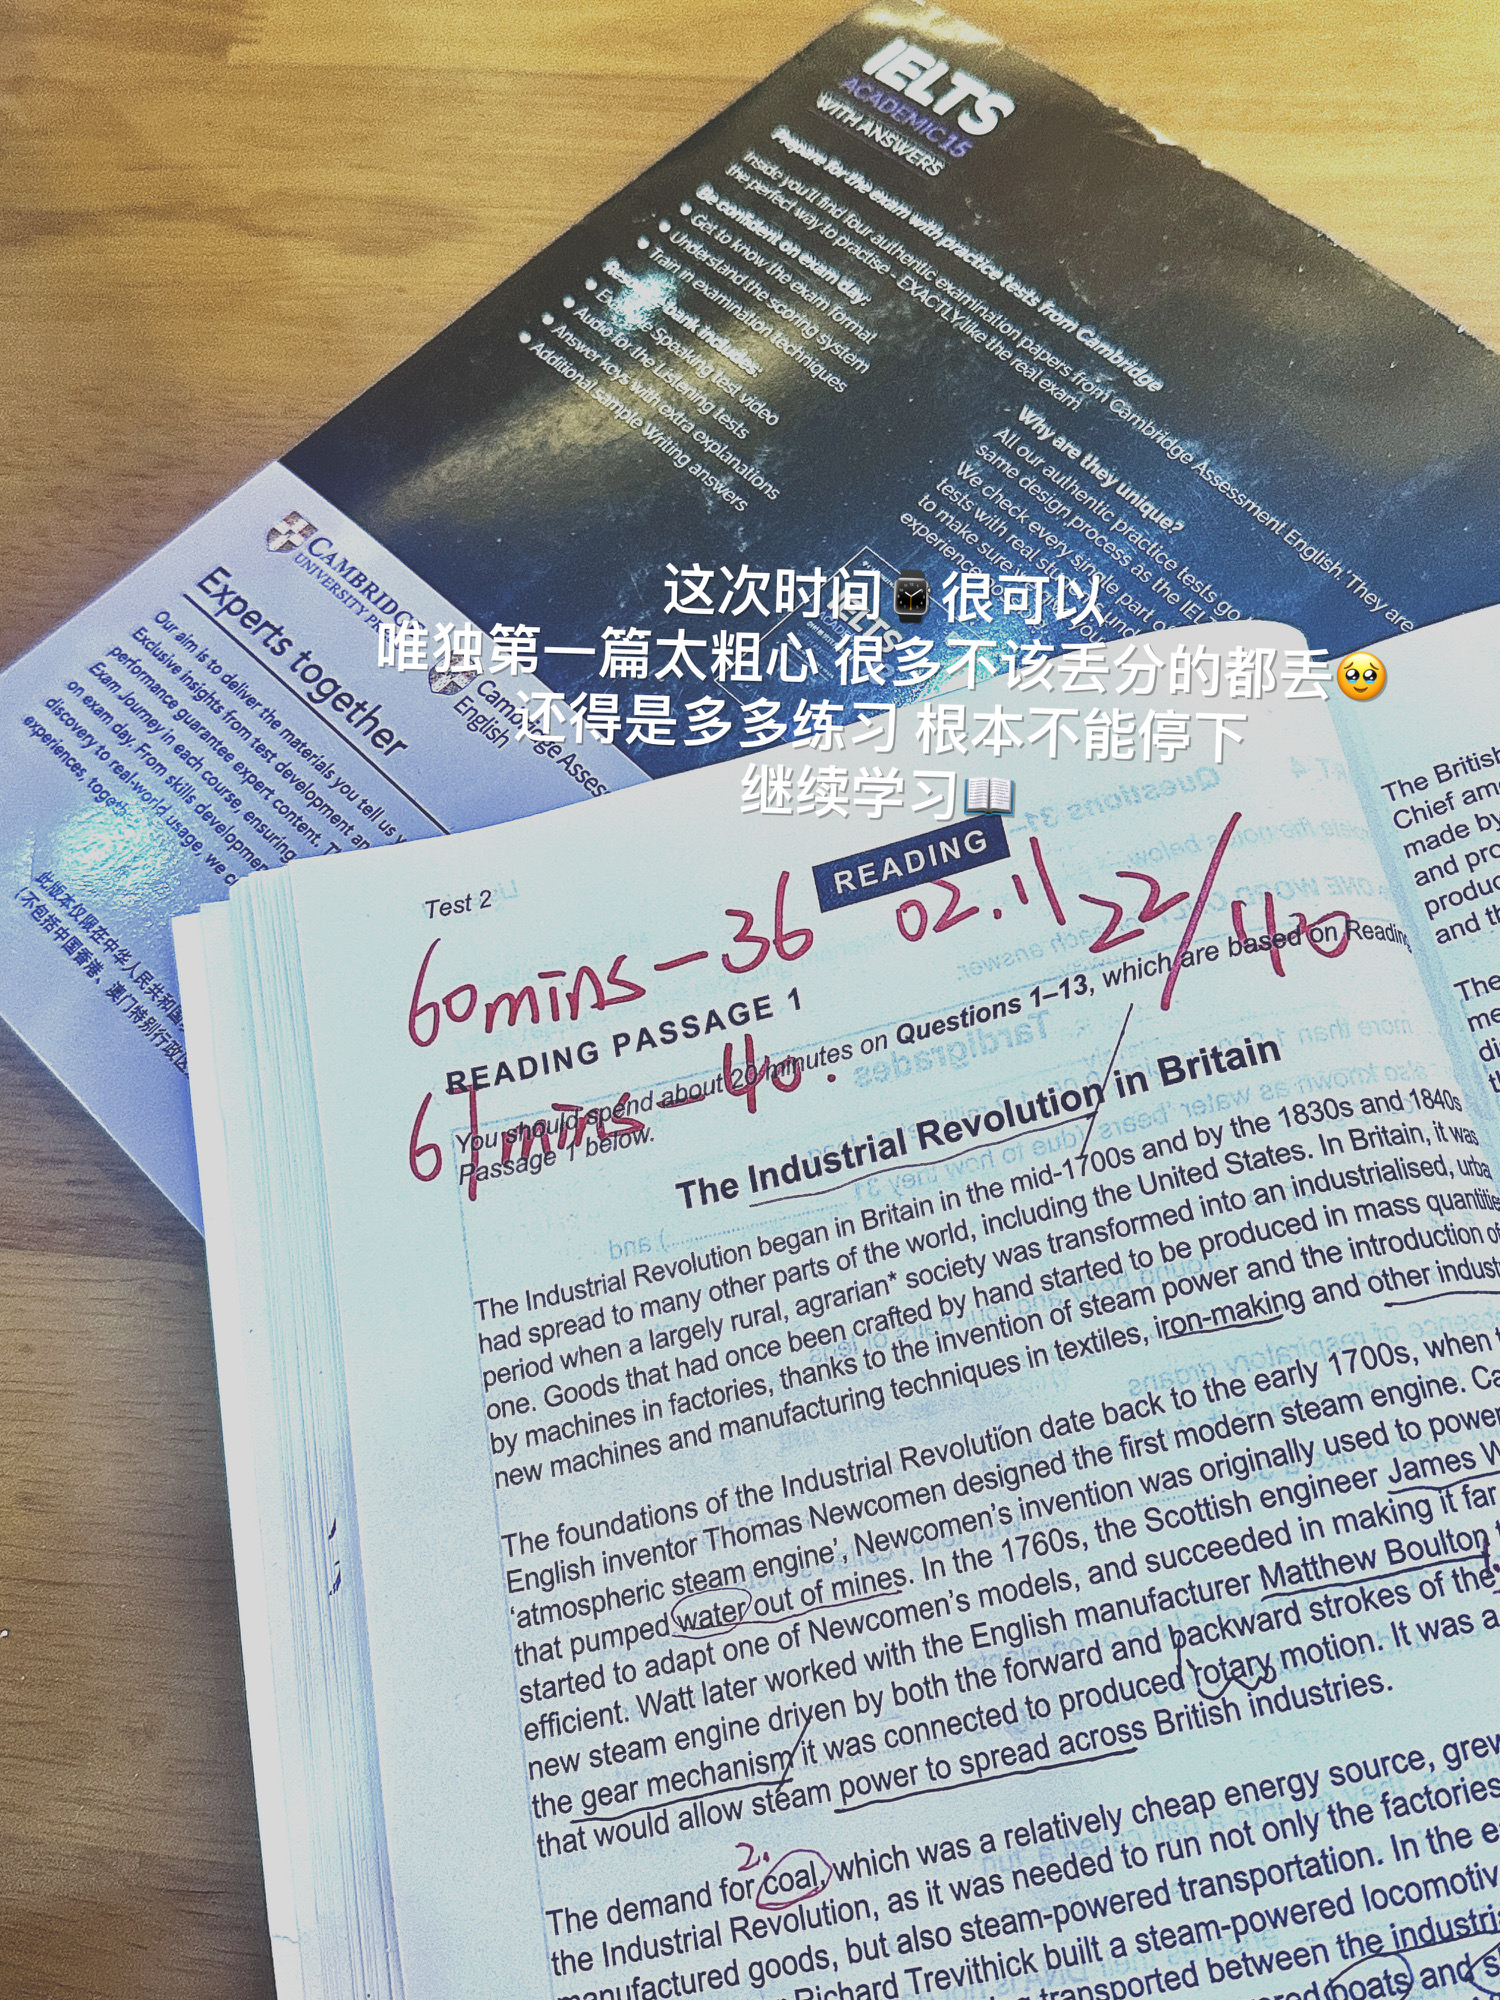 IELTS
ACADEMIC 15
WITH ANSWERS
Prepare for the exam with practice tests from Cambridge
Inside you'll find four authentic examination papers from Cambridge Assessment English. They are
the perfect way to practise - EXACTLY like the real exam.
Be confident on exam day:
Get to know the exam format
Understand the scoring system
Train in examination techniques
bank includes:
Speaking test video
Audio for the Listening tests
Answer keys with extra explanations
Additional sample Writing answers
Why are they unique?
All our authentic practice tests go
same design process as the IEL
We check every single part of
tests with real stu
to make sure
experience
CAMBRIDGE
UNIVERSITY PR
Cambridge Asses
English
Experts together
Our aim is to deliver the materials you tell us y
Exclusive insights from test development an
performance guarantee expert content. T
Exam Journey in each course, ensuring
on exam day. From skills developmen
discovery to real-world usage, we c
experiences, together
此版本仅限在中华人民共和国
(不包括中国香港、澳门特别行政区
这次时间⌚很可以
唯独第一篇太粗心 很多不该丢分的都丢🥹
还得是多多练习 根本不能停下
继续学习📖
Test 2
READING
60mins-36 02.11 22/40
READING PASSAGE 1
67mins-40.
You should spend about 20 minutes on Questions 1–13, which are based on Reading
Passage 1 below.
The Industrial Revolution in Britain
The Industrial Revolution began in Britain in the mid-1700s and by the 1830s and 1840s
had spread to many other parts of the world, including the United States. In Britain, it was
period when a largely rural, agrarian* society was transformed into an industrialised, urba
one. Goods that had once been crafted by hand started to be produced in mass quantitie
by machines in factories, thanks to the invention of steam power and the introduction of
new machines and manufacturing techniques in textiles, iron-making and other indust
The foundations of the Industrial Revolution date back to the early 1700s, when t
English inventor Thomas Newcomen designed the first modern steam engine. Ca
'atmospheric steam engine', Newcomen's invention was originally used to power
that pumped water out of mines. In the 1760s, the Scottish engineer James W
started to adapt one of Newcomen's models, and succeeded in making it far
efficient. Watt later worked with the English manufacturer Matthew Boulton t
new steam engine driven by both the forward and backward strokes of the
the gear mechanism it was connected to produced rotary motion. It was a
that would allow steam power to spread across British industries.
2.
The demand for coal, which was a relatively cheap energy source, grew
the Industrial Revolution, as it was needed to run not only the factories
manufactured goods, but also steam-powered transportation. In the e
Richard Trevithick built a steam-powered locomotiv
transported between the industria
boats and s
The British
Chief am
made by
and pro
produc
and th
The
me
di
t